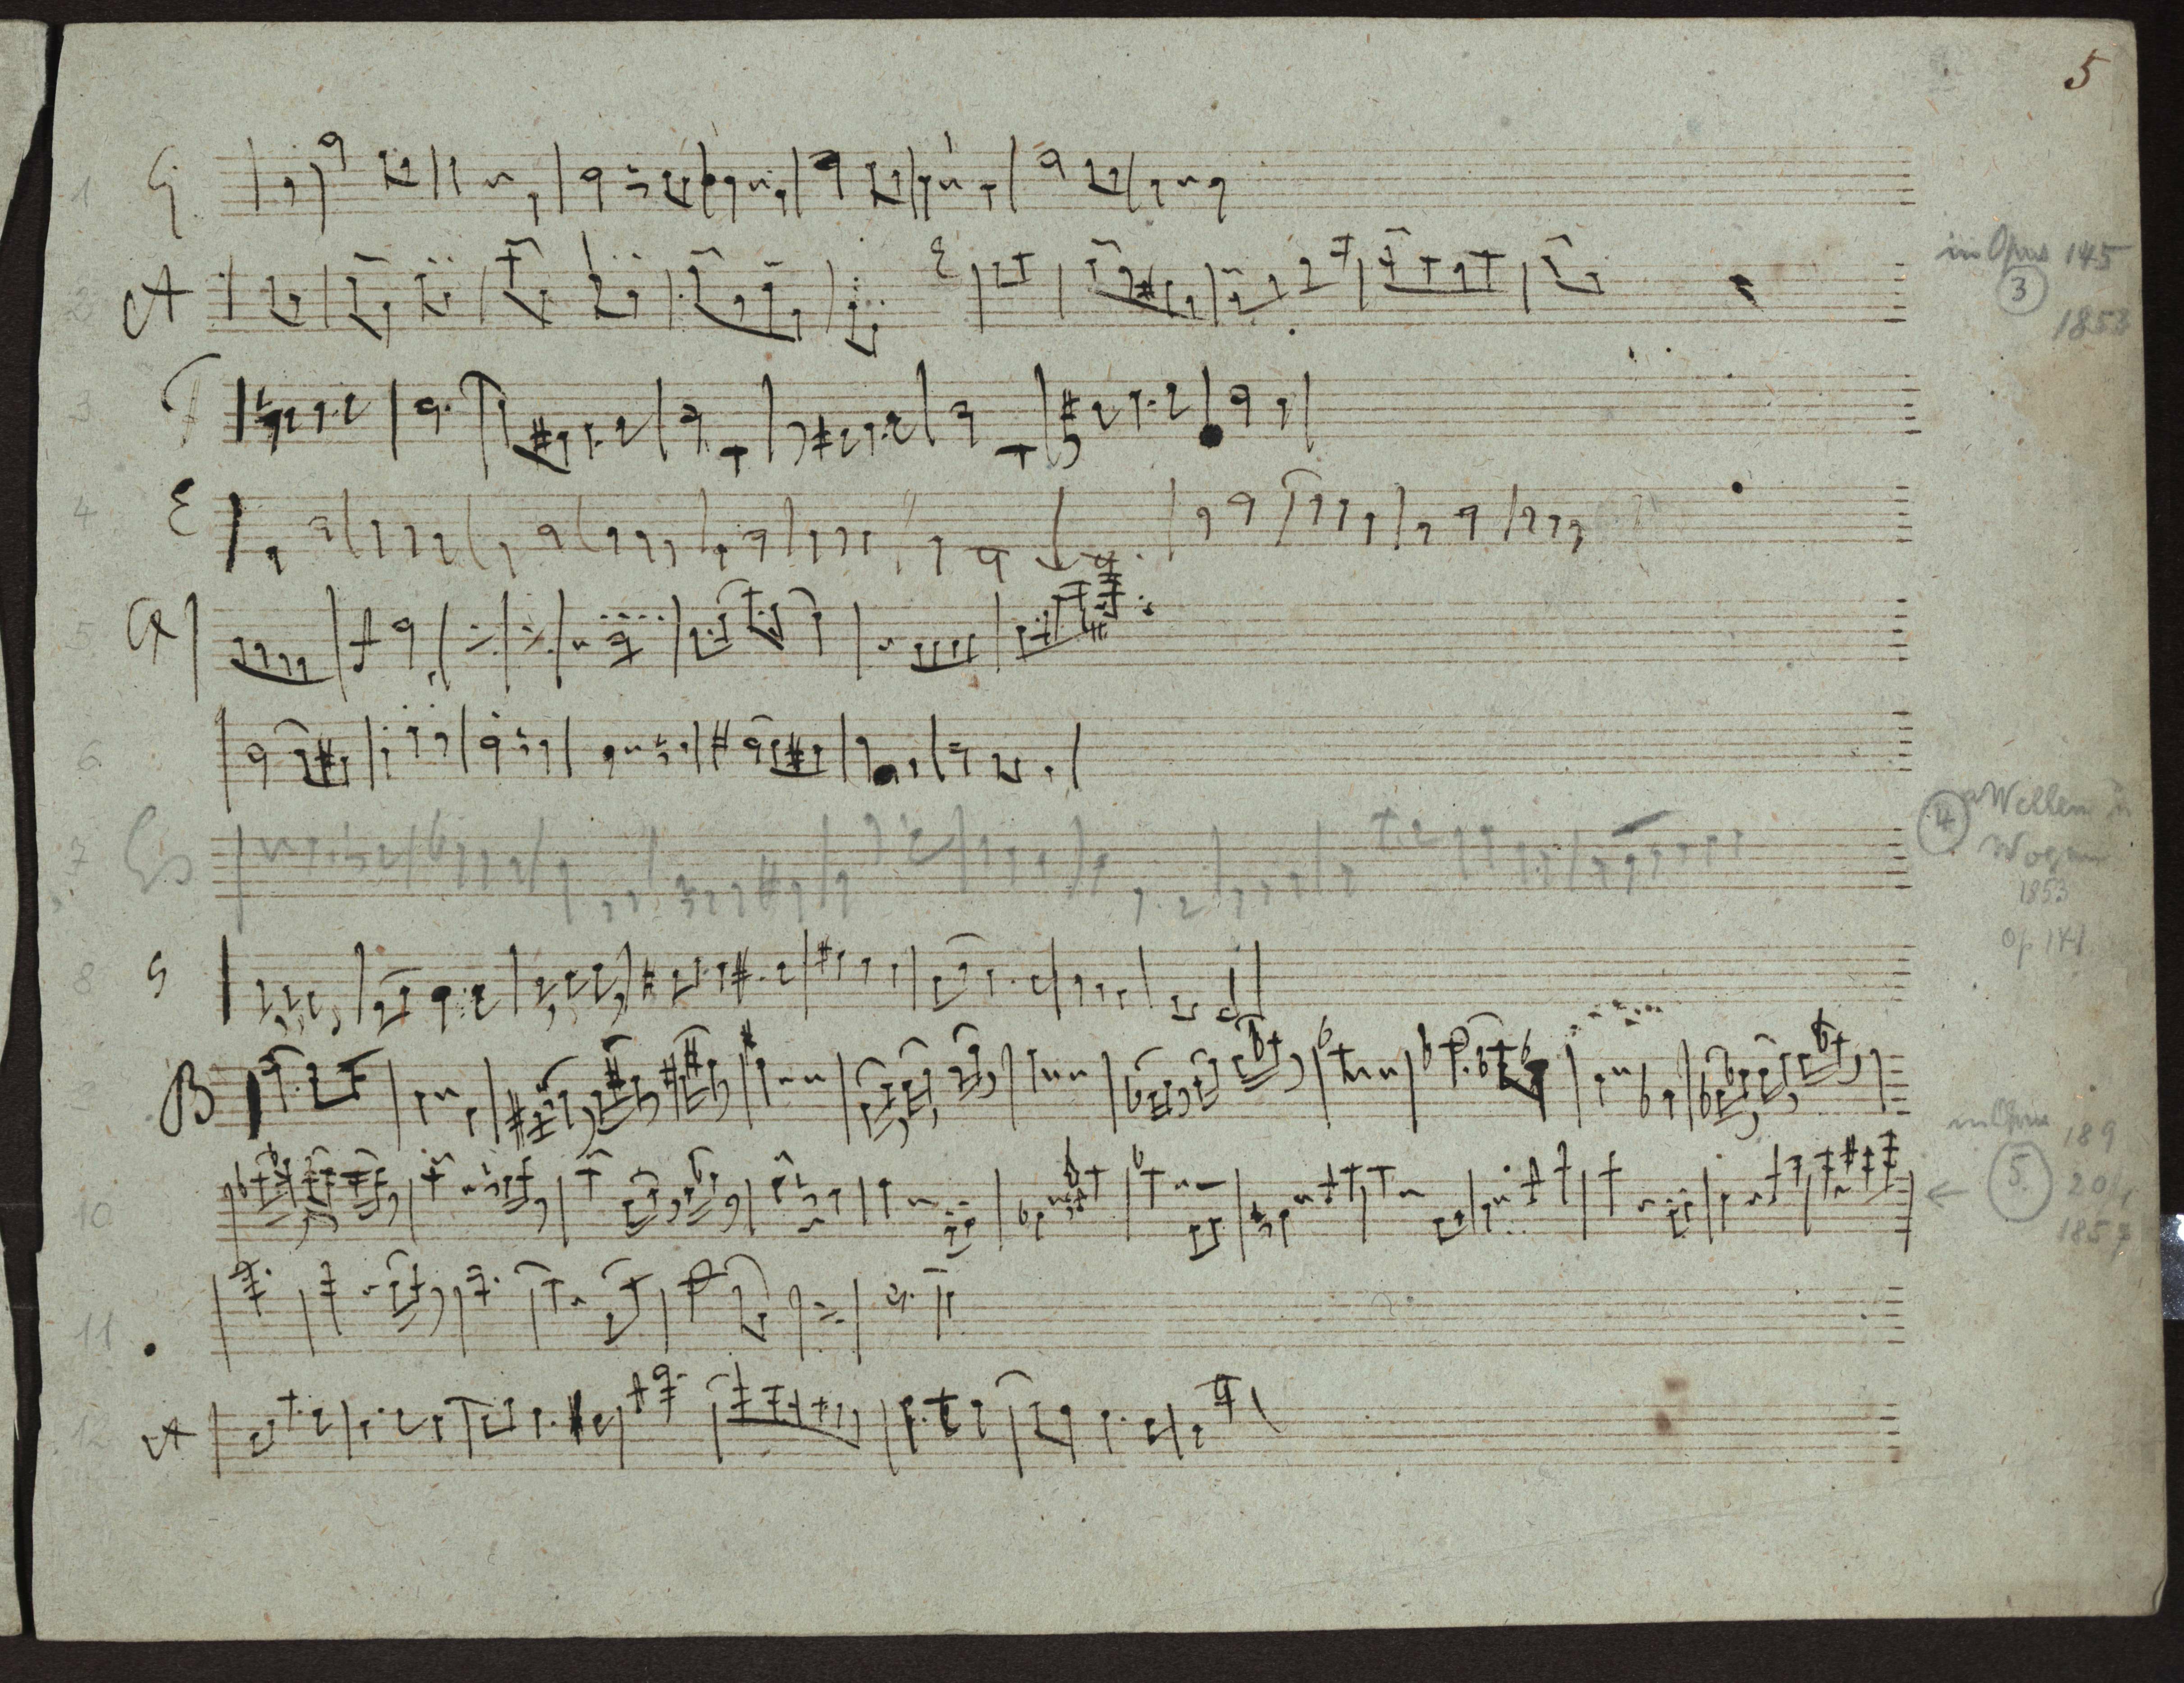 5
1 G
2 A E
in Opus 145
3
1853
3
4 E
5 A
6
7 Es
4 Wellen u
Wogen
1853
Op 141
8 G
B
in Opus 189
5. 204
1857
10
11
12 A